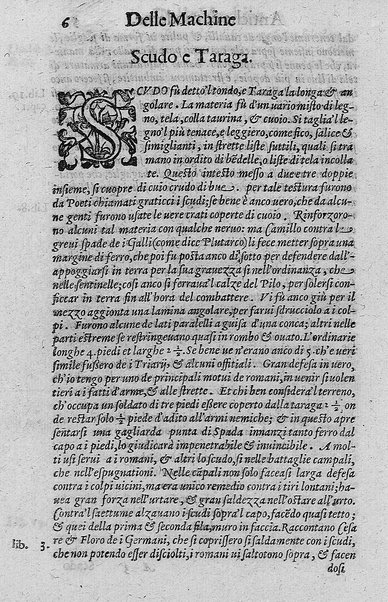 6 Delle Machine
Scudo e Taraga.
SCVDO fù detto'l tondo, e Taraga la longa & an
golare. La materia fù d'un vario misto di leg
no, tela, colla taurina, & cuoio. Si taglia'l le
gno'l più tenace, e leggiero, come fico, salice &
simiglianti, in strette liste sutili, quali si tra
mano in ordito di bēdelle, o liste di tela incolla
te. Questo intesto messo a due e tre doppie
insieme, si cuopre di cuio crudo di bue per tale testura furono
da Poeti chiamati graticci i scudi; se bene è anco vero, che da alcu-
ne genti furono usate le uere crati coperte di cuoio. Rinforzoro-
no alcuni tal materia con qualche neruo: ma Camillo contra le
greui spade de i Galli (come dice Plutarco) li fece metter sopra una
margine di ferro, che poi fu posta anco di sotto per defendere dall'
appoggiarsi in terra per la sua grauezza si nell'ordinanza, che
nelle sentinelle; cosi anco si ferraua'l calze del Pilo, per solersi con-
ficear in terra fin all'hora del combattere. Vi fù anco giù per il
mezzo aggionta una lamina angolare, per farui sdrucciolo a i col-
pi. Furono alcune de lati paralelli a guisa d'una conca; altri nelle
parti estreme se restringeuano quasi in rombo & ouato. L'ordinarie
longhe 4. piedi et larghe 2 ½. Se bene ue n'erano anco di 5. ch'è ueri
simile fussero de i Triarij, & alcuni offitiali. Gran defesa in uero,
ch'io tengo per uno de principali motui de romani, in uenir si uolen
tieri a i fatti d'arme, & alle strette. Et chi ben considera'l terreno,
ch'occupa un soldato di tre piedi essere coperto dalla taraga 2 ½ on
de restar solo ½ piede d'adito all'armi nemiche; & in questo apre
sentarsi una gagliarda punta di Spada innanzi tanto ferro dal
capo a i piedi, lo giudicarà impenetrabile & inuincibile. A mol-
ti usi serui a i romani, & altri lo scudo, si nelle battaglie campali,
che nell'espugnationi. Nelle cāpali non solo faceasi larga defesa
contra i colpi uicini, ma era unico remedio contra i tiri lontani; ha-
uea gran forza nell'urtare, & grau saldezza nell'ostare all'urto.
Contra'l saettume alzauano i scudi sopra'l capo, facēdo quasi tetto;
& quei della prima & seconda fila, muro in faccia. Raccontano Cesa
re & Floro de i Germani, che si coprissero si saldamente con i scudi,
lib. 3. che non potendo esser disciolti, i romani ui saltotono sopra, & facen
dosi